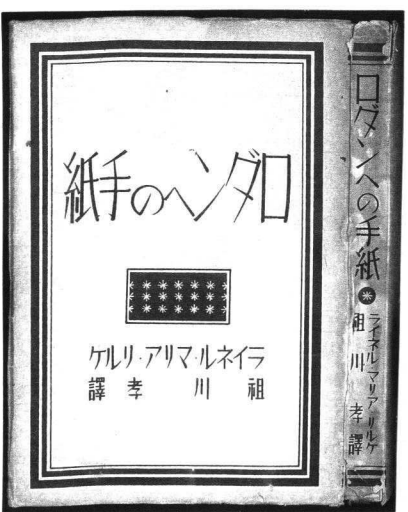 ロダンへの手紙
ライネル・マリア・リルケ
祖川孝譯
ロダンへの手紙
ライネル・マリア・リルケ
祖川孝譯